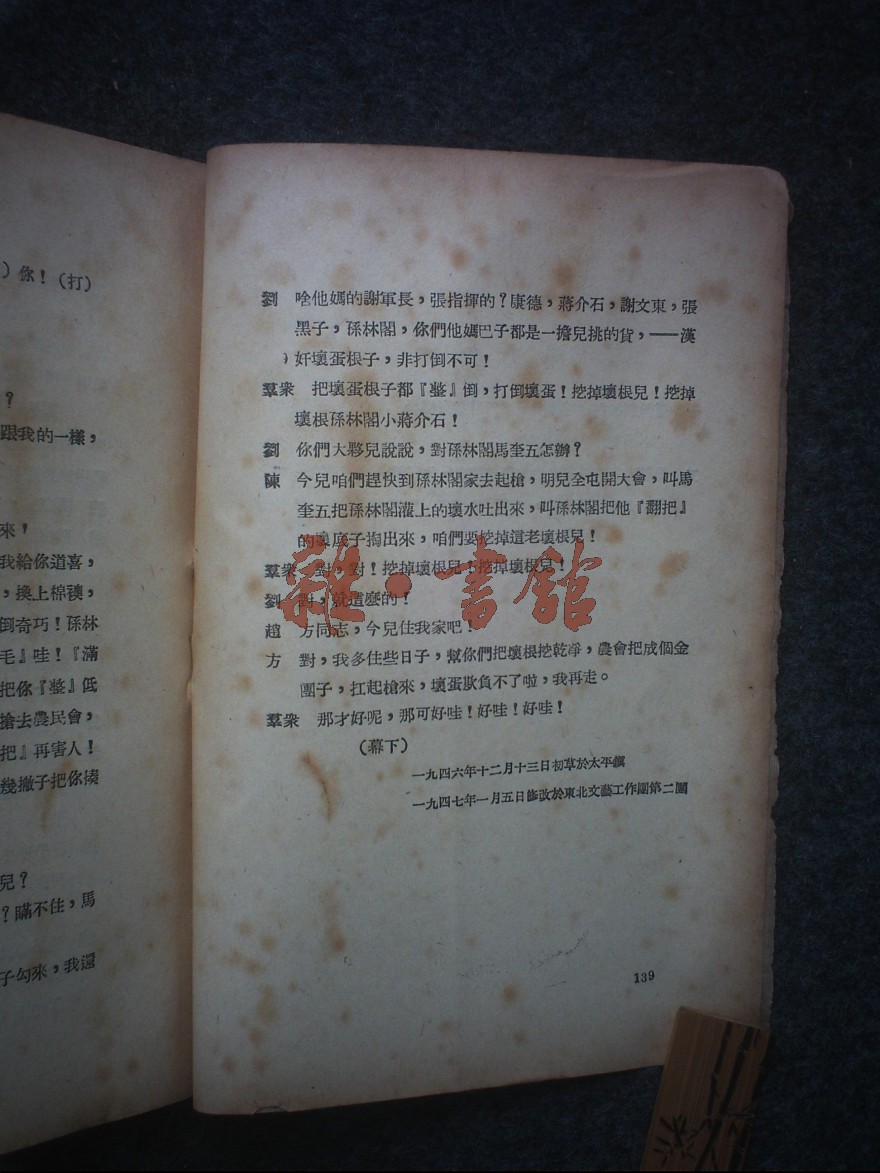 )你!(打)
?
跟我的一樣,
來!
我給你道喜,
,換上棉襖,
倒奇巧!孫林
毛』哇!『滿
把你『整』低
搶去農民會,
把』再害人!
幾撇子把你揍
兒?
?瞞不住,馬
子勾來,我還
劉 啥他媽的謝軍長,張指揮的?康德,蔣介石,謝文東,張
黑子,孫林閣,你們他媽巴子都是一擔兒挑的貨,——漢
奸壞蛋根子,非打倒不可!
羣衆 把壞蛋根子都『整』倒,打倒壞蛋!挖掉壞根兒!挖掉
壞根孫林閣小蔣介石!
劉 你們大夥兒說說,對孫林閣馬奎五怎辦?
陳 今兒咱們趕快到孫林閣家去起槍,明兒全屯開大會,叫馬
奎五把孫林閣灌上的壞水吐出來,叫孫林閣把他『翻把』
的壞底子掏出來,咱們要挖掉這老壞根兒!
羣衆 對,對!挖掉壞根兒!挖掉壞根兒!
劉 對,就這麼的!
趙 方同志,今兒住我家吧!
方 對,我多住些日子,幫你們把壞根挖乾淨,農會把成個金
團子,扛起槍來,壞蛋欺負不了啦,我再走。
羣衆 那才好呢,那可好哇!好哇!好哇!
(幕下)
一九四六年十二月十三日初草於太平鎭
一九四七年一月五日修改於東北文藝工作團第二團
139
雜·書館